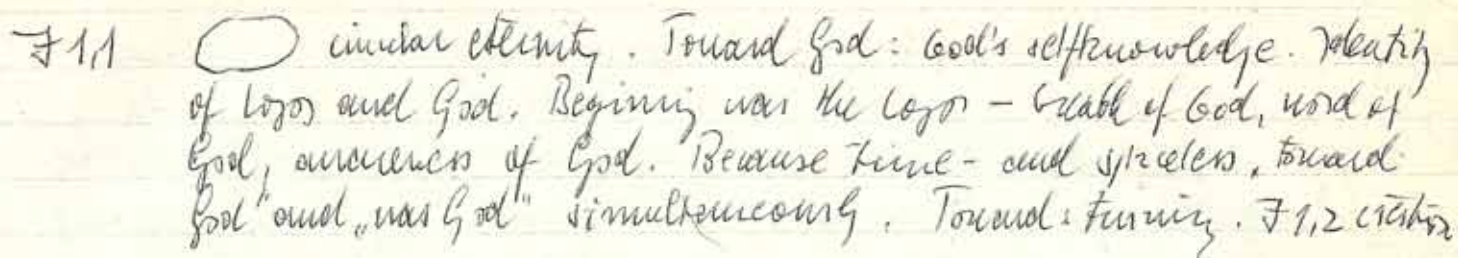 J 1,1 circular eternity. Toward God: God's selfknowledge. Identity
of Logos and God. Beginning was the Logos – breath of God, word of
God, awareness of God. Because time- and spaceless, toward
God" and „was God" simultaneously. Toward: turning. J 1,2